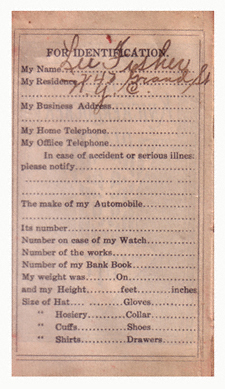 FOR IDENTIFICATION.
My Name Lee Fisher
My Residence 443 Grand St
N. Y. C.
My Business Address
My Home Telephone
My Office Telephone
In case of accident or serious illness
please notify
The make of my Automobile
Its number
Number on case of my Watch
Number of the works
Number of my Bank Book
My weight was......On
and my Height........feet........inches
Size of Hat........Gloves
" Hosiery........Collar
" Cuffs........Shoes
" Shirts........Drawers